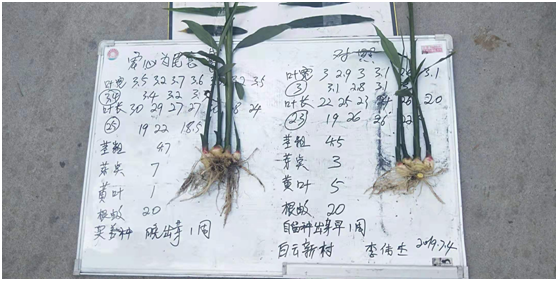 爱心为民
叶宽 3.5 3.2 3.7 3.6 3.2 3.5
3.4 3.4 3.2
叶长 30 29 27 27 28 24
25 19 22 18.5
茎粗 47
芽实 7
黄叶 1
根数 20
买姜种 晚出芽1周
对照
叶宽 3 2.9 3 3.1 3.1
3 3.1 2.8 3.1
叶长 22 25 23 20
23 19 26 22
茎粗 45
芽实 3
黄叶 5
根数 20
自留种出芽早1周
白云新村 李伟 2019.7.4